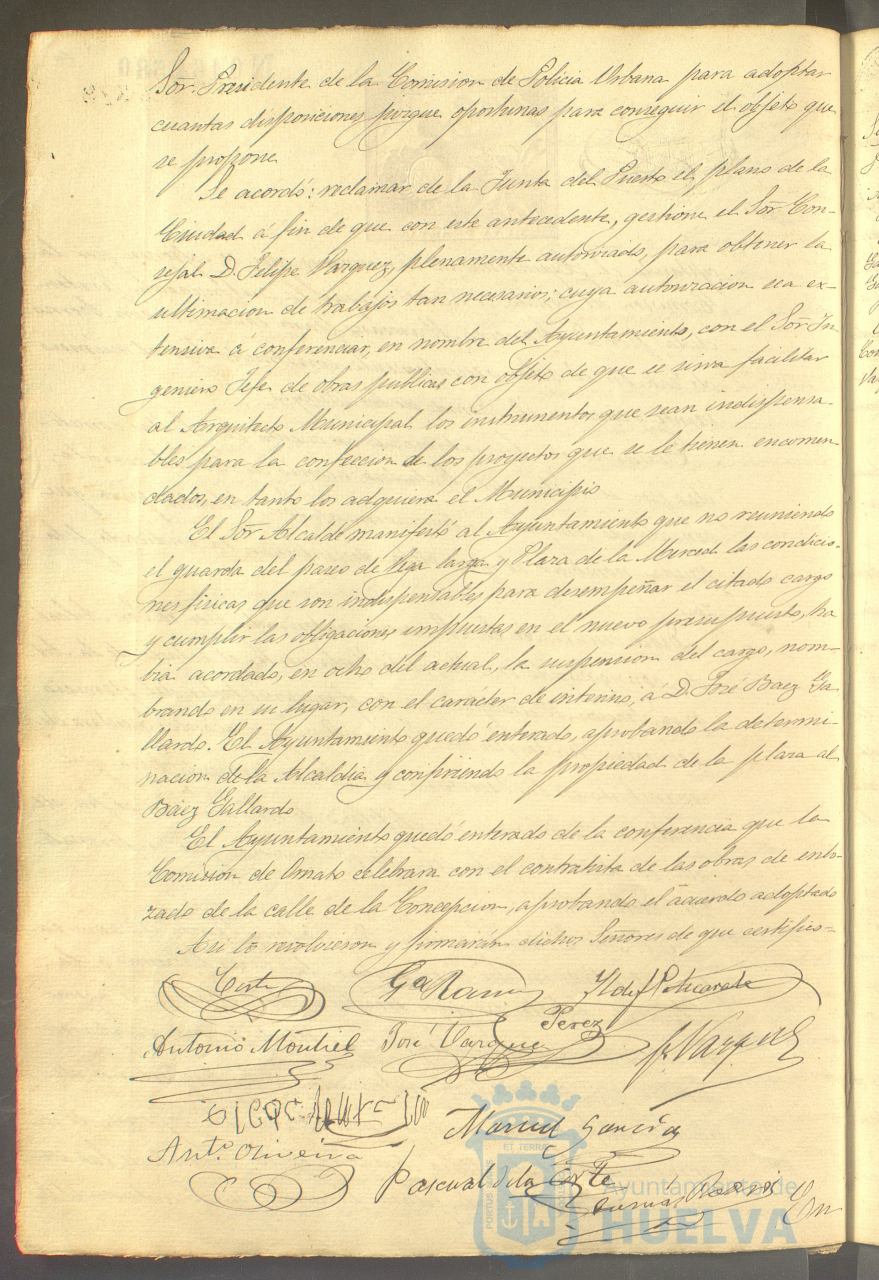 Sor. Presidente de la Comision de Policia Urbana para adoptar
cuantas disposiciones juzgue oportunas para conseguir el objeto que
se propone
Se acordó: reclamar de la Junta del Puerto el plano de la
Ciudad á fin de que con este antecedente, gestione el Sor Con-
sejal D. Felipe Vazquez, plenamente autorizado, para obtener la
ultimacion de trabajos tan necesarios; cuya autorizacion sea ex-
tensiva á conferenciar, en nombre del Ayuntamiento, con el Sor In-
geniero Jefe de obras publicas con objeto de que se sirva facilitar
al Arquitecto Municipal los instrumentos que sean indispensa-
bles para la confeccion de los proyectos que se le tienen encomen
dados, en tanto los adquiera el Municipio
El Sor Alcalde manifestó al Ayuntamiento que no reuniendo
el guarda del paseo de Vega larga y Plaza de la Merced las condicio-
nes fisicas que son indispensables para desempeñar el citado cargo
y cumplir las obligaciones impuestas en el nuevo presupuesto, ha
bia acordado, en ocho del actual, la suspension del cargo, nom
brando en su lugar, con el carácter de interino, á D. José Baez Ga
llardo. El Ayuntamiento quedó enterado, aprobando la determi-
nacion de la Alcaldia y confiriendo la propiedad de la plaza al
Báez Gallardo
El Ayuntamiento quedó enterado de la conferencia que la
Comision de Ornato celebrara con el contratista de las obras de enlo-
zado de la calle de la Concepcion, aprobando el acuerdo adoptado
Asi lo resolvieron y firmarán dichos Señores de que certifico=
Antonio Montiel José Vazquez Perez F. Vazquez
Manuel Garcia
Anto. Oliveira
Pascual de la Corte
PORTUS ET TERRAE
Ayuntamiento de
HUELVA